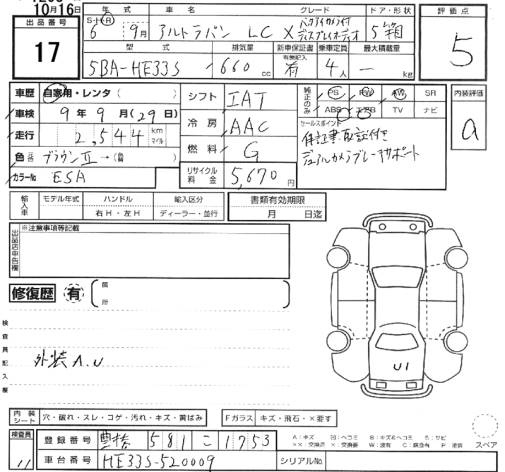 10月16日
出品番号
17
年式 車名 グレード ドア・形状
S・H・R
6 9月 アルトラパン LC X バックアイカメラ付ディスプレイオーディオ 5 箱
型式 排気量 新車保証書 乗車定員 最大積載量
有無記入
5BA-HE33S 660 cc 有 4 人 — kg
評価点
5
車歴 自家用・レンタ ( )
車検 9年 9月 (29日)
走行 2,544 km マイル
色 ブラウンⅡ → (替)
カラーNo ESA
シフト IAT
冷房 AAC
燃料 G
リサイクル料金 5,670円
純正のみ PS PW AW SR
ABS エアB TV ナビ
セールスポイント
保証書・取説付き
デュアルカメラブレーキサポート
内装評価
a
輸入車 モデル年式 ハンドル 輸入区分
右H・左H ディーラー・並行
書類有効期限
月 日迄
出品店申告欄
※注意事項等記載
修復歴 有
箇所
検査員記入欄
外装A.U
U1
内装シート 穴・破れ・スレ・コゲ・汚れ・キズ・黄ばみ
Fガラス キズ・飛石・X要す
検査員
登録番号 豊橋 581 こ 1753
車台番号 HE33S-520009
シリアルNo
スペア